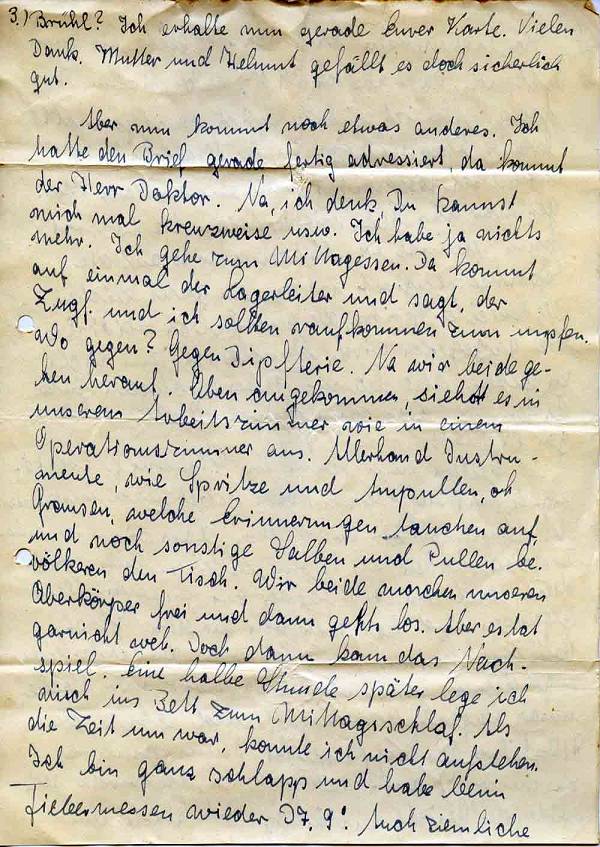 3.) Brühl? Ich erhalte nun gerade Euere Karte. Vielen
Dank. Mutter und Helmut gefällt es doch sicherlich
gut.
Aber nun kommt noch etwas anderes. Ich
hatte den Brief gerade fertig adressiert, da kommt
der Herr Doktor. Na, ich denk, Du kannst
mich mal kreuzweise usw. Ich habe ja nichts
mehr. Ich gehe zum Mittagessen. Da kommt
auf einmal der Lagerleiter und sagt, der
Zugf. und ich sollten raufkommen zum impfen.
Wo gegen? Gegen Dipfterie. Na wir beide ge-
hen herauf. Oben angekommen, sieht es in
unserem Arbeitszimmer wie in einem
Operationszimmer aus. Allerhand Instru-
mente, wie Spritze und Ampullen, oh
Grausen, welche Erinnerungen tauchen auf,
und noch sonstige Salben und Pullen be-
völkeren den Tisch. Wir beide machen unseren
Oberkörper frei und dann gehts los. Aber es tat
garnicht weh. Doch dann kam das Nach-
spiel. Eine halbe Stunde später lege ich
mich ins Bett zum Mittagsschlaf. Als
die Zeit um war, konnte ich nicht aufstehen.
Ich bin ganz schlapp und habe beim
Fiebermessen wieder 37,9°. Auch ziemliche